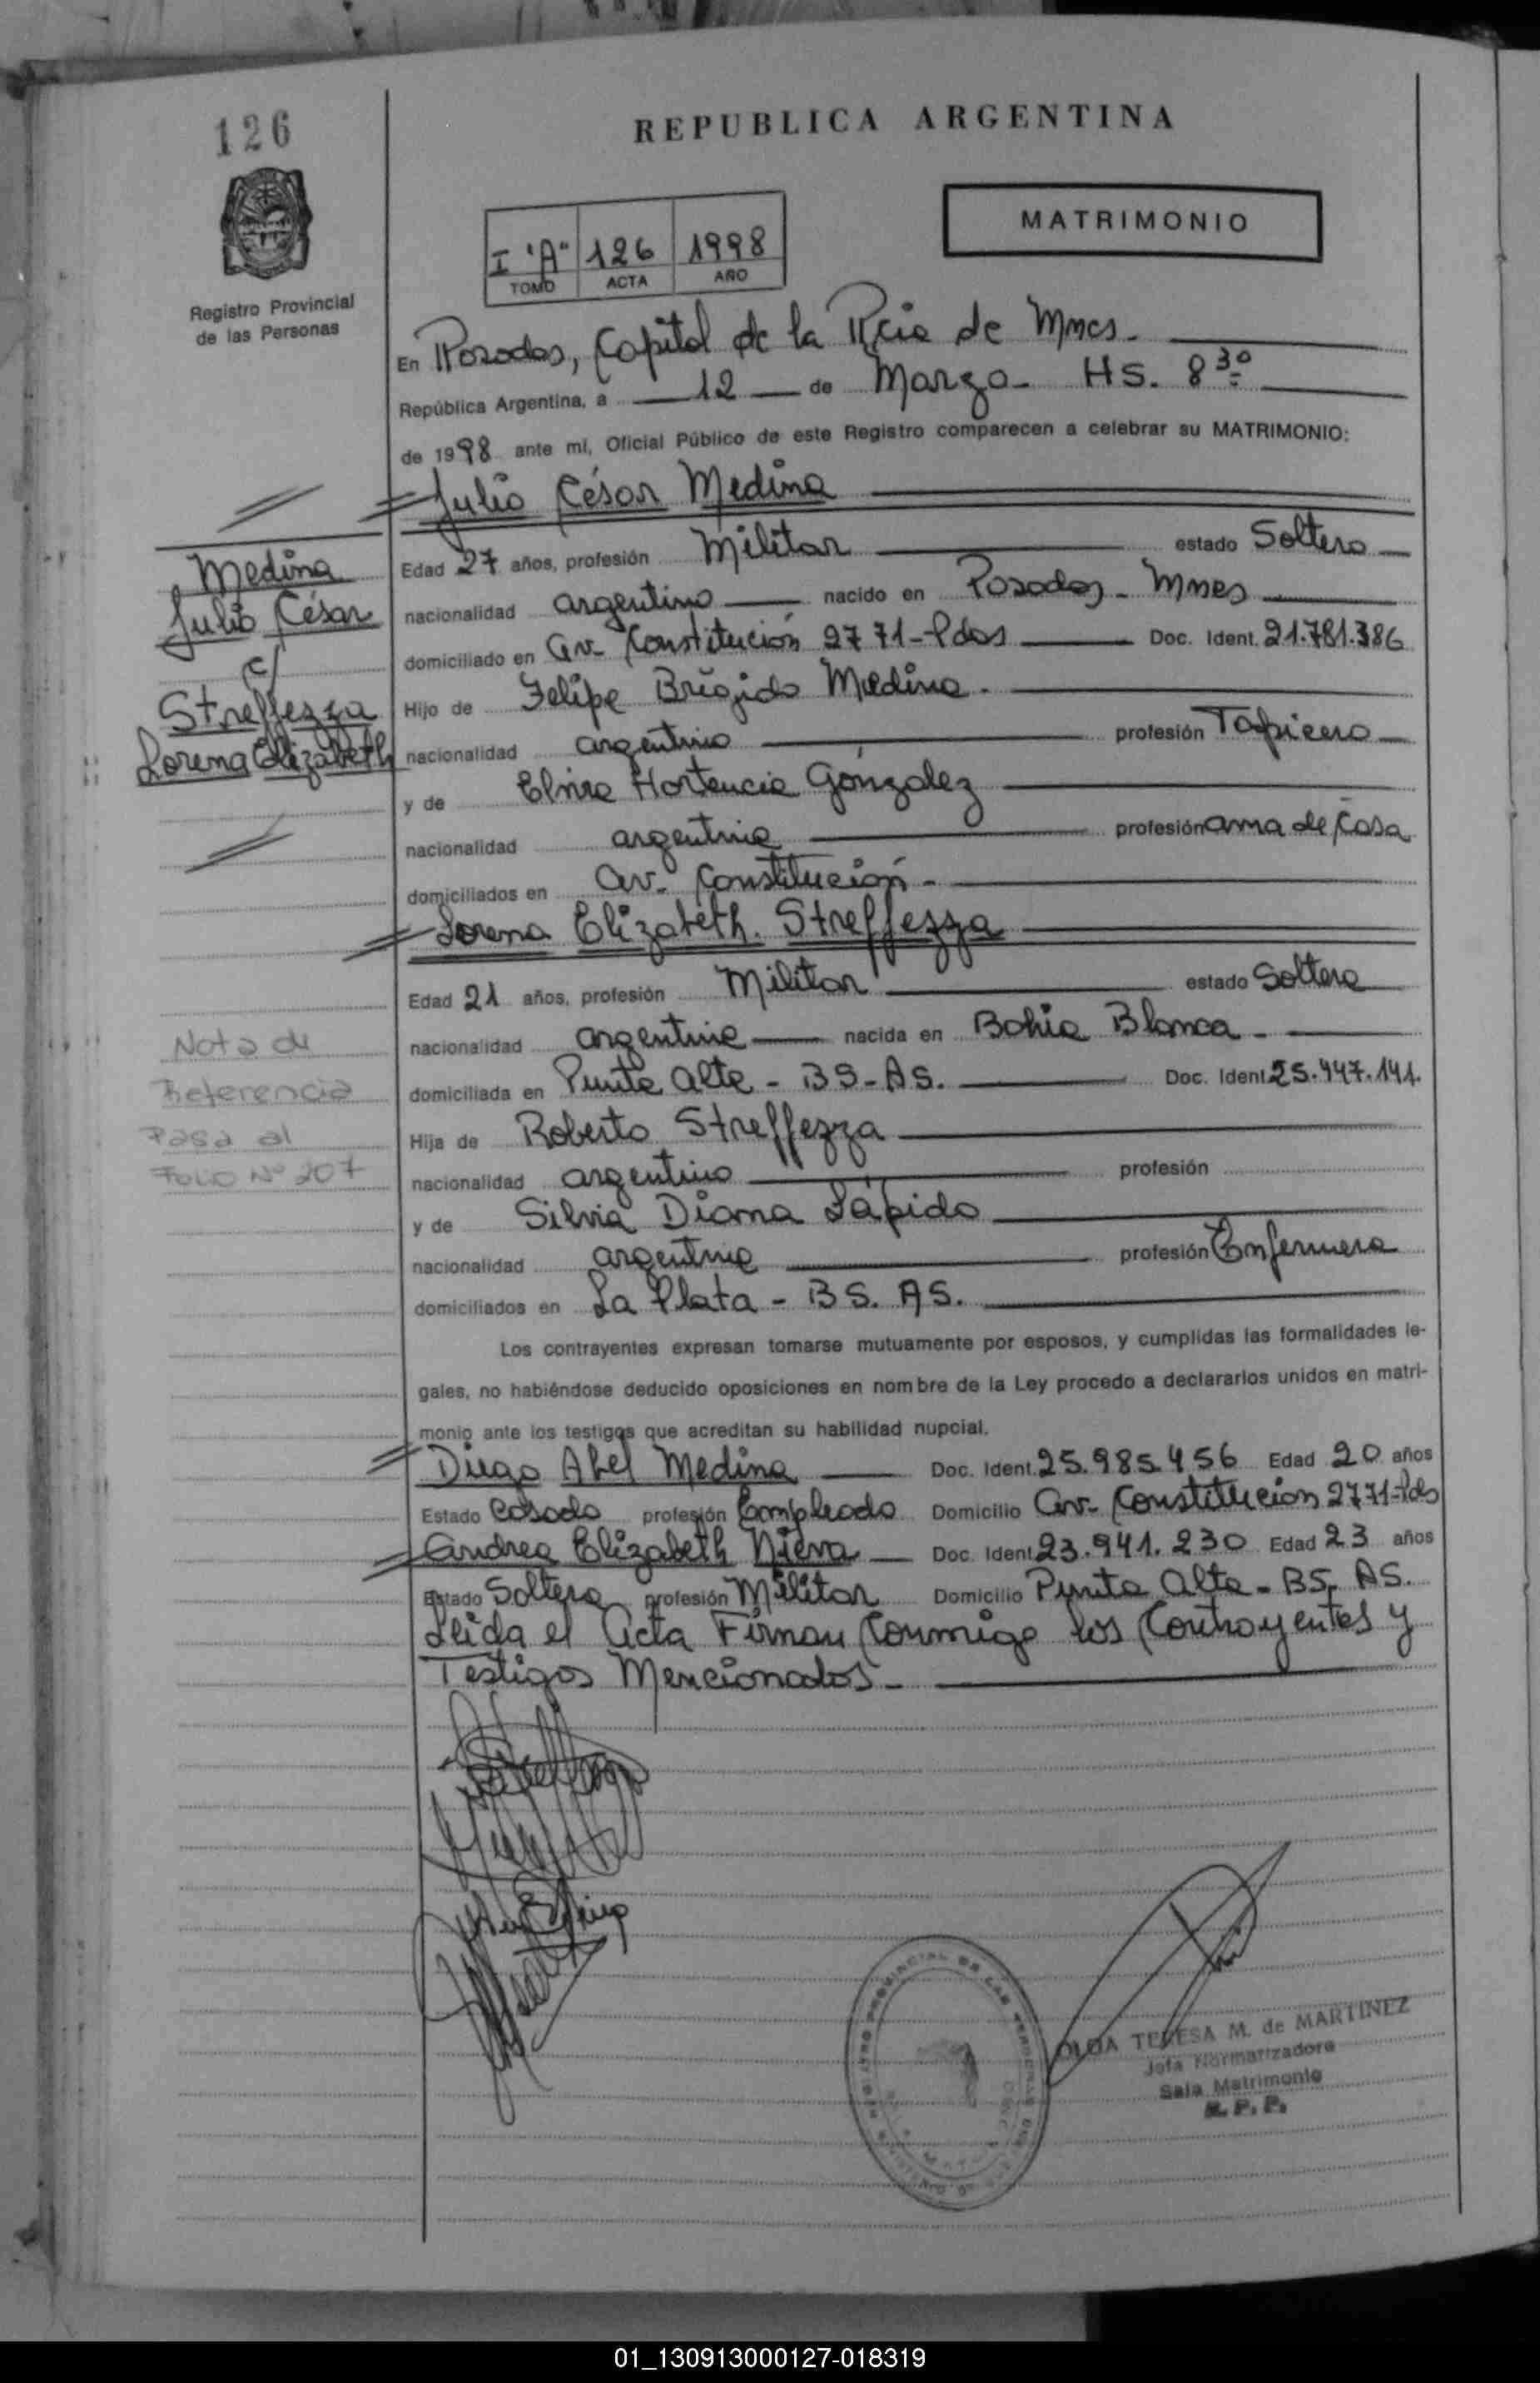 126
REPUBLICA ARGENTINA
MATRIMONIO
I "A" 126 1998
TOMO ACTA AÑO
Registro Provincial
de las Personas
En Posadas, Capital de la Pcia de Mnes.
República Argentina, a 12 de Marzo - HS. 8 30
de 1998 ante mí, Oficial Público de este Registro comparecen a celebrar su MATRIMONIO:
Julio César Medina
Medina
Julio César
c/
Streffezza
Lorena Elizabeth
Edad 27 años, profesión Militar estado Soltero
nacionalidad argentino nacido en Posadas - Mnes
domiciliado en Av. Constitución 2771 - Pdas Doc. Ident. 21.781.386
Hijo de Felipe Brígido Medina.
nacionalidad argentino profesión Tapicero
y de Elvira Hortencia Gónzalez
nacionalidad argentina profesión ama de Casa
domiciliados en av. Constitución -
Lorena Elizabeth. Streffezza
Edad 21 años, profesión Militar estado Soltera
nacionalidad argentina nacida en Bahia Blanca -
domiciliada en Punta Alta - BS-AS. Doc. Ident. 25.447.141.
Hija de Roberto Streffezza
nacionalidad argentino profesión
y de Silvia Diana Lápido
nacionalidad argentina profesión Enfermera
domiciliados en La Plata - BS. AS.
Nota de
Referencia
Pasa al
Folio Nº 207
Los contrayentes expresan tomarse mutuamente por esposos, y cumplidas las formalidades le-
gales, no habiéndose deducido oposiciones en nombre de la Ley procedo a declararlos unidos en matri-
monio ante los testigos que acreditan su habilidad nupcial.
Diego Abel Medina Doc. Ident. 25.985.456 Edad 20 años
Estado Casado profesión Empleado Domicilio Av. Constitución 2771-Pdas
Andrea Elizabeth Nieva Doc. Ident. 23.941.230 Edad 23 años
Estado Soltera profesión Militar Domicilio Punta Alta - BS. AS.
Leída el Acta Firman Conmigo los Contrayentes y
Testigos Mencionados -
OLGA TERESA M. de MARTINEZ
Jefa Normatizadora
Sala Matrimonio
R. P. P.
01_130913000127-018319